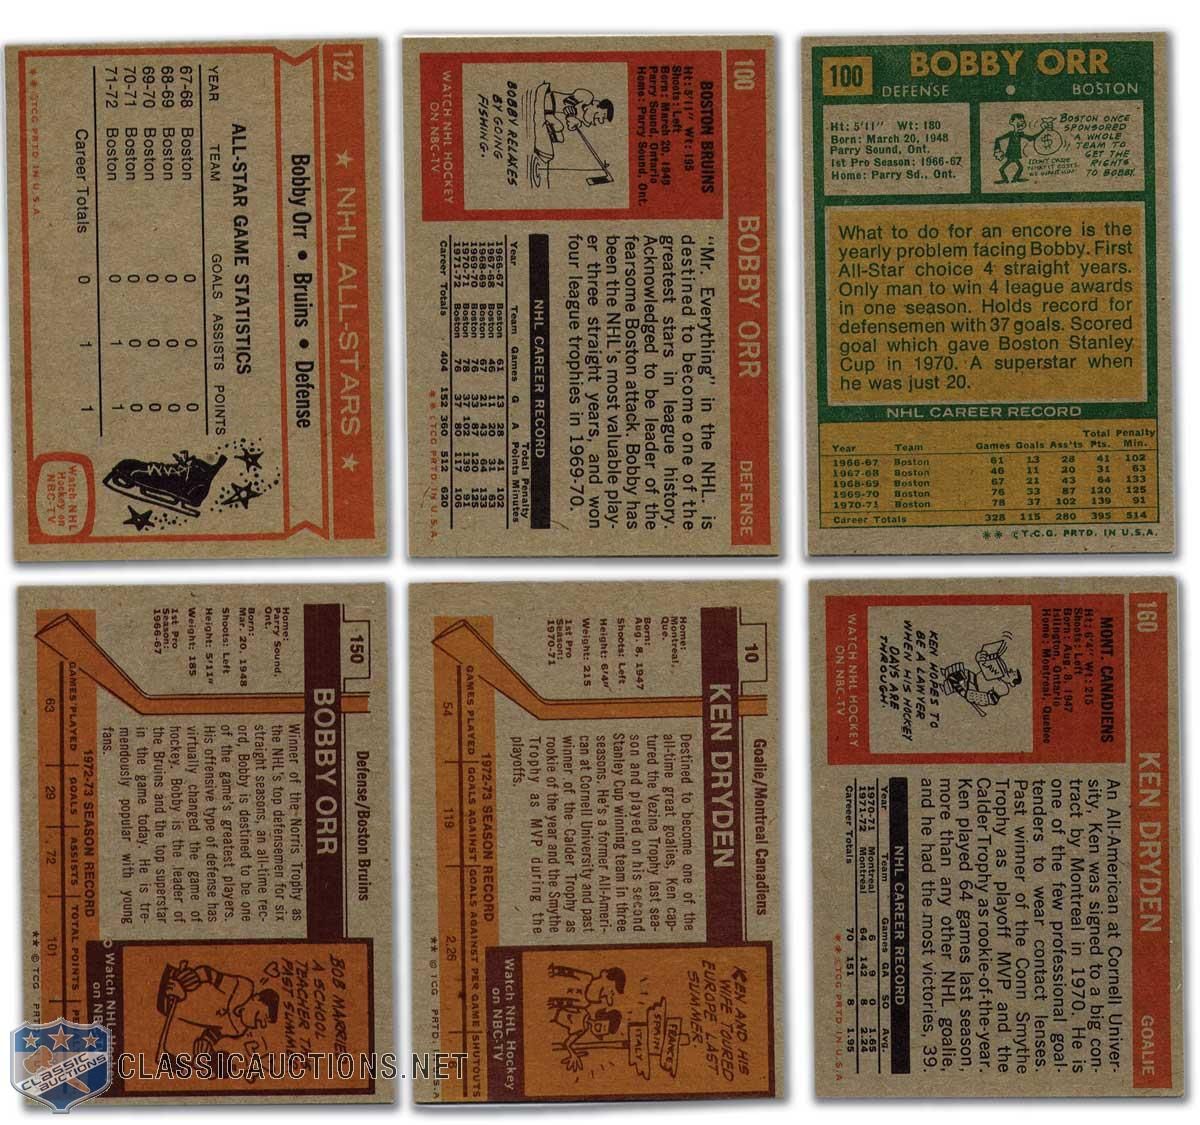 122
★ NHL ALL-STARS ★
Bobby Orr • Bruins • Defense
ALL-STAR GAME STATISTICS
YEAR TEAM GOALS ASSISTS POINTS
67-68 Boston 0 0 0
68-69 Boston 0 0 0
69-70 Boston 0 0 0
70-71 Boston 0 0 0
71-72 Boston 0 1 1
Career Totals 0 1 1
Watch NHL
Hockey on
NBC-TV
** © T.C.G. PRTD. IN U.S.A.
100
BOBBY ORR
DEFENSE
BOSTON BRUINS
Ht: 5'11" Wt: 195
Shoots: Left
Born: March 20, 1948
Parry Sound, Ontario
Home: Parry Sound, Ont.
BOBBY RELAXES
BY GOING
FISHING.
WATCH NHL HOCKEY
ON NBC-TV
"Mr. Everything" in the NHL is
destined to become one of the
greatest stars in league history.
Acknowledged to be leader of the
fearsome Boston attack. Bobby has
been the NHL's most valuable play-
er three straight years, and won
four league trophies in 1969-70.
NHL CAREER RECORD
Total Penalty
Year Team Games G A Points Minutes
1966-67 Boston 61 13 28 41 102
1967-68 Boston 46 11 20 31 63
1968-69 Boston 67 21 43 64 133
1969-70 Boston 76 33 87 120 125
1970-71 Boston 78 37 102 139 91
1971-72 Boston 76 37 80 117 106
Career Totals 404 152 360 512 620
** © T.C.G. PRTD. IN U.S.A.
100
BOBBY ORR
DEFENSE • BOSTON
Ht: 5'11" Wt: 180
Born: March 20, 1948
Parry Sound, Ont.
1st Pro Season: 1966-67
Home: Parry Sd., Ont.
BOSTON ONCE
SPONSORED
A WHOLE
TEAM TO
GET THE
RIGHTS
TO BOBBY.
What to do for an encore is the
yearly problem facing Bobby. First
All-Star choice 4 straight years.
Only man to win 4 league awards
in one season. Holds record for
defensemen with 37 goals. Scored
goal which gave Boston Stanley
Cup in 1970. A superstar when
he was just 20.
NHL CAREER RECORD
Total Penalty
Year Team Games Goals Ass'ts Pts. Min.
1966-67 Boston 61 13 28 41 102
1967-68 Boston 46 11 20 31 63
1968-69 Boston 67 21 43 64 133
1969-70 Boston 76 33 87 120 125
1970-71 Boston 78 37 102 139 91
Career Totals 328 115 280 395 514
** © T.C.G. PRTD. IN U.S.A.
150
BOBBY ORR
Defense/Boston Bruins
Home:
Parry Sound,
Ont.
Born:
Mar. 20, 1948
Shoots: Left
Height: 5'11"
Weight: 185
1st Pro
Season:
1966-67
Winner of the Norris Trophy as
the NHL's top defensemen for six
straight seasons, an all-time rec-
ord, Bobby is destined to be one
of the game's greatest players.
His offensive type of defense has
virtually changed the game of
hockey. Bobby is the leader of
the Bruins and the top superstar
in the game today. He is tre-
mendously popular with young
fans.
BOB MARRIED
A SCHOOL
TEACHER THIS
PAST SUMMER
Watch NHL
on NBC
1972-73 SEASON RECORD
GAMES PLAYED GOALS ASSISTS TOTAL POINTS
63 29 72 101
** © TCG PRTD
10
KEN DRYDEN
Goalie/Montreal Canadiens
Home:
Montreal,
Que.
Born:
Aug. 8, 1947
Shoots: Left
Height: 6'4"
Weight: 215
1st Pro
Season:
1970-71
Destined to become one of the
all-time great goalies, Ken cap-
tured the Vezina Trophy last sea-
son and played on his second
Stanley Cup winning team in three
seasons. He's a former All-Ameri-
can at Cornell University and past
winner of the Calder Trophy as
rookie of the year and the Smythe
Trophy as MVP during the
playoffs.
KEN AND HIS
WIFE TOURED
EUROPE LAST
SUMMER
FRANCE
SPAIN
ITALY
Watch NHL Hockey
on NBC-TV
1972-73 SEASON RECORD
GAMES PLAYED GOALS AGAINST GOALS AGAINST PER GAME SHUTOUTS
54 119 2.26
** © TCG PRTD.
160
KEN DRYDEN
GOALIE
MONT. CANADIENS
Ht: 6'4" Wt: 215
Shoots: Left
Born: Aug. 8, 1947
Islington, Ontario
Home: Montreal, Quebec
LAW
KEN HOPES TO
BE A LAWYER
WHEN HIS HOCKEY
DAYS ARE
THROUGH.
WATCH NHL HOCKEY
ON NBC-TV
An All-American at Cornell Univer-
sity, Ken was signed to a big con-
tract by Montreal in 1970. He is
one of the few professional goal-
tenders to wear contact lenses.
Past winner of the Conn Smythe
Trophy as playoff MVP and the
Calder Trophy as rookie-of-the-year.
Ken played 64 games last season,
more than any other NHL goalie,
and he had the most victories, 39.
NHL CAREER RECORD
Year Team Games GA SO Avg.
1970-71 Montreal 6 9 0 1.65
1971-72 Montreal 64 142 8 2.24
Career Totals 70 151 8 1.95
** © T.C.G. PRTD. IN U.S.A.
CLASSIC
AUCTIONS
CLASSICAUCTIONS.NET